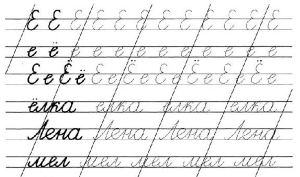 Е Е Е Е Е Е Е Е Е Е Е Е
е ё е е е е е е е е е е
Ее Ёё Ее Ёе Ее Ёе Ее Ёе Ее Ёе
ёлка елка ёлка елка
Лена Лена Лена Лена
мел мел мел мел мел